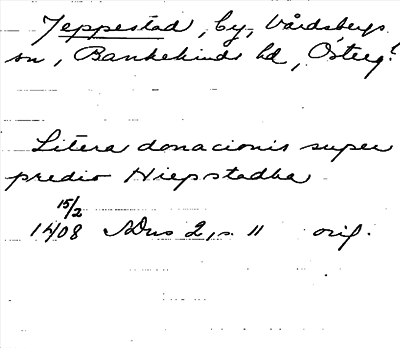 Jeppestad, by, Vårdsbergs
sn, Bankekinds hd, Österg.
Litera donacionis super
predio Hiepstadha
15/2
1408 SDns 2, s. 11 orig.